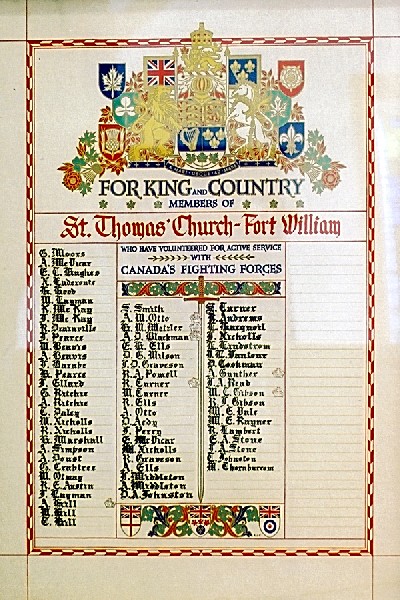 FOR KING AND COUNTRY
MEMBERS OF
St. Thomas' Church - Fort William
WHO HAVE VOLUNTEERED FOR ACTIVE SERVICE
WITH
CANADA'S FIGHTING FORCES
G. Moors
A. McVicar
E. L. Hughes
H. Hood
W. Layman
K. McKay
J. McKay
J. Pearce
W. Beavis
A. Beavis
H. Pearce
F. Ellard
G. Ritchie
A. Ritchie
C. Daley
W. Nicholls
R. Nicholls
H. Marshall
A. Simpson
A. Doust
G. Crabtree
R. E. Austin
J. Layman
A. Hill
W. Hill
C. Hill
S. Smith
A. W. Otto
H. W. Metzler
A. D. Blackman
E. H. Ells
D. G. Wilson
J. D. Graveson
R. A. Powell
R. Carner
W. Carner
R. Ells
A. Otto
D. Aedy
F. Perry
E. McVicar
M. Nicholls
R. Graveson
A. Ells
F. Middleton
A. Middleton
D. A. Johnston
E. Turner
R. Andrews
J. Nicholls
E. Lindstrom
D. Cookman
A. Gunther
J. A. Read
M. C. Gibson
R. J. Gibson
W. E. Vale
W. E. Rayner
R. Lambert
G. A. Stone
F. A. Stone
C. Johnston
M. Thorburn